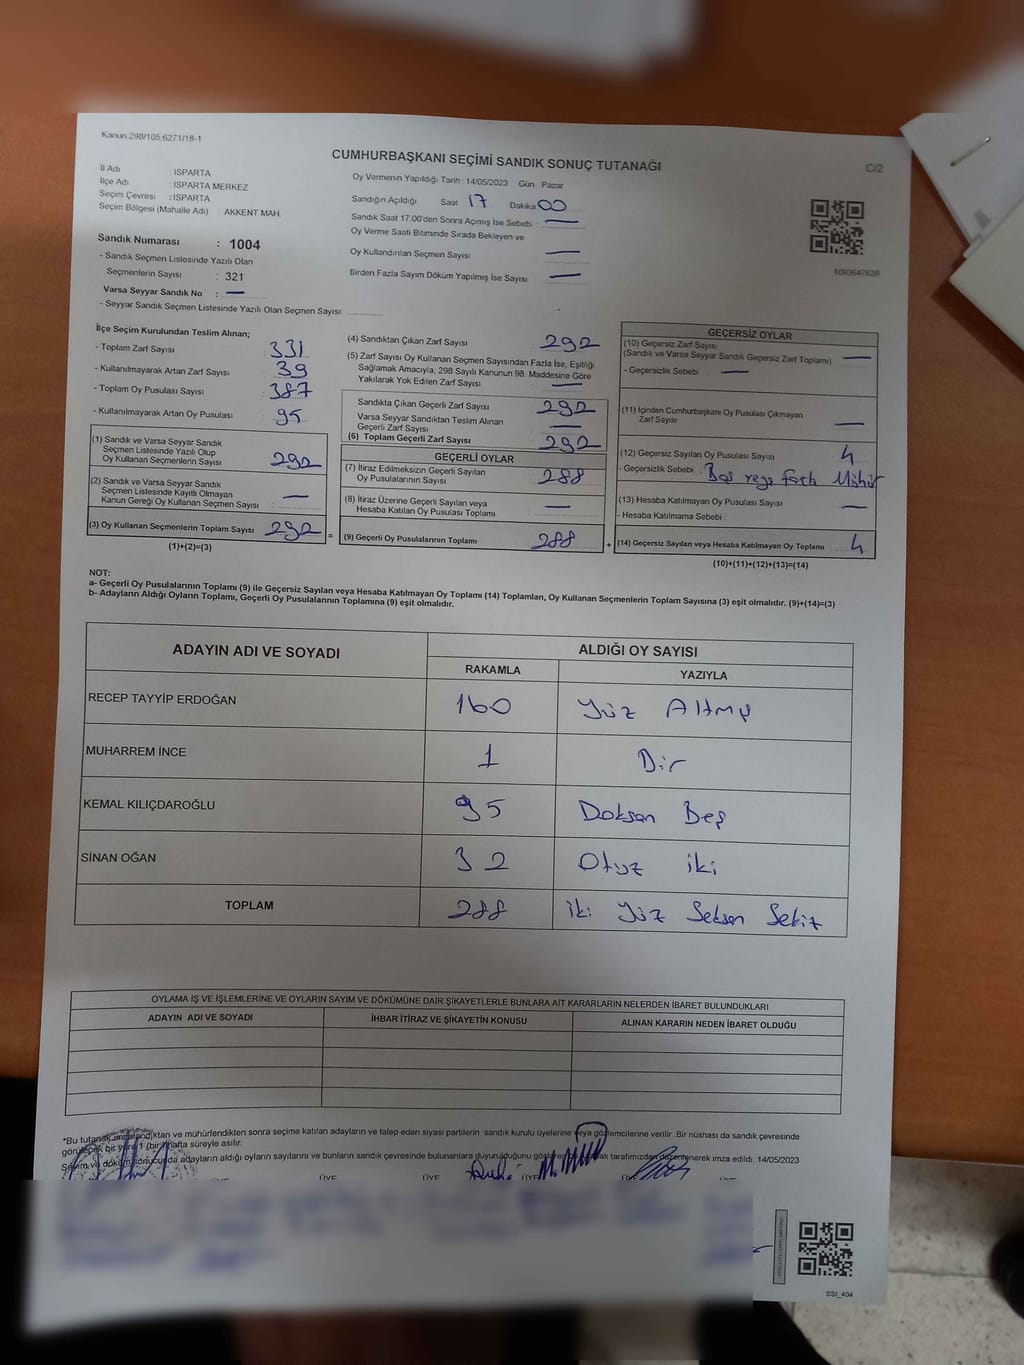 Kanun:298/105,6271/18-1
CUMHURBAŞKANI SEÇİMİ SANDIK SONUÇ TUTANAĞI
C/2
İl Adı : ISPARTA
İlçe Adı : ISPARTA MERKEZ
Seçim Çevresi : ISPARTA
Seçim Bölgesi (Mahalle Adı) : AKKENT MAH.
Oy Vermenin Yapıldığı Tarih : 14/05/2023 Gün Pazar
Sandığın Açıldığı Saat 17 Dakika 00
Sandık Saat 17:00'den Sonra Açımış İse Sebebi : —
Oy Verme Saati Bitiminde Sırada Bekleyen ve
Oy Kullandırılan Seçmen Sayısı —
Birden Fazla Sayım Döküm Yapılmış İse Sayısı —
1093647639
Sandık Numarası : 1004
- Sandık Seçmen Listesinde Yazılı Olan
Seçmenlerin Sayısı : 321
Varsa Seyyar Sandık No : —
- Seyyar Sandık Seçmen Listesinde Yazılı Olan Seçmen Sayısı:
İlçe Seçim Kurulundan Teslim Alınan;
- Toplam Zarf Sayısı 331
- Kullanılmayarak Artan Zarf Sayısı 39
- Toplam Oy Pusulası Sayısı 387
- Kullanılmayarak Artan Oy Pusulası 95
(1) Sandık ve Varsa Seyyar Sandık
Seçmen Listesinde Yazılı Olup
Oy Kullanan Seçmenlerin Sayısı 292
(2) Sandık ve Varsa Seyyar Sandık
Seçmen Listesinde Kayıtlı Olmayan
Kanun Gereği Oy Kullanan Seçmen Sayısı —
(3) Oy Kullanan Seçmenlerin Toplam Sayısı 292
(1)+(2)=(3)
(4) Sandıktan Çıkan Zarf Sayısı 292
(5) Zarf Sayısı Oy Kullanan Seçmen Sayısından Fazla İse, Eşitliği
Sağlamak Amacıyla, 298 Sayılı Kanunun 98. Maddesine Göre
Yakılarak Yok Edilen Zarf Sayısı —
Sandıkta Çıkan Geçerli Zarf Sayısı 292
Varsa Seyyar Sandıktan Teslim Alınan
Geçerli Zarf Sayısı —
(6) Toplam Geçerli Zarf Sayısı 292
GEÇERLİ OYLAR
(7) İtiraz Edilmeksizin Geçerli Sayılan
Oy Pusulalarının Sayısı 288
(8) İtiraz Üzerine Geçerli Sayılan veya
Hesaba Katılan Oy Pusulası Toplamı —
= (9) Geçerli Oy Pusulalarının Toplamı 288
GEÇERSİZ OYLAR
(10) Geçersiz Zarf Sayısı
(Sandık ve Varsa Seyyar Sandık Geçersiz Zarf Toplamı) —
- Geçersizlik Sebebi : —
(11) İçinden Cumhurbaşkanı Oy Pusulası Çıkmayan
Zarf Sayısı —
(12) Geçersiz Sayılan Oy Pusulası Sayısı 4
- Geçersizlik Sebebi : Boş veya fazla Mühür
(13) Hesaba Katılmayan Oy Pusulası Sayısı —
- Hesaba Katılmama Sebebi :
+ (14) Geçersiz Sayılan veya Hesaba Katılmayan Oy Toplamı 4
(10)+(11)+(12)+(13)=(14)
NOT:
a- Geçerli Oy Pusulalarının Toplamı (9) ile Geçersiz Sayılan veya Hesaba Katılmayan Oy Toplamı (14) Toplamları, Oy Kullanan Seçmenlerin Toplam Sayısına (3) eşit olmalıdır. (9)+(14)=(3)
b- Adayların Aldığı Oyların Toplamı, Geçerli Oy Pusulalarının Toplamına (9) eşit olmalıdır.
ADAYIN ADI VE SOYADI ALDIĞI OY SAYISI
RAKAMLA YAZIYLA
RECEP TAYYİP ERDOĞAN 160 Yüz Altmış
MUHARREM İNCE 1 Bir
KEMAL KILIÇDAROĞLU 95 Doksan Beş
SİNAN OĞAN 32 Otuz iki
TOPLAM 288 iki Yüz Seksen Sekiz
OYLAMA İŞ VE İŞLEMLERİNE VE OYLARIN SAYIM VE DÖKÜMÜNE DAİR ŞİKAYETLERLE BUNLARA AİT KARARLARIN NELERDEN İBARET BULUNDUKLARI
ADAYIN ADI VE SOYADI İHBAR İTİRAZ VE ŞİKAYETİN KONUSU ALINAN KARARIN NEDEN İBARET OLDUĞU
*Bu tutanak imzalandıktan ve mühürlendikten sonra seçime katılan adayların ve talep eden siyasi partilerin sandık kurulu üyelerine veya gözlemcilerine verilir. Bir nüshası da sandık çevresinde
görülecek bir yere 1 (bir) hafta süreyle asılır.
Seçim ve döküm sonucunda adayların aldığı oyların sayılarını ve bunların sandık çevresinde bulunanlara duyurulduğunu gösteren tutanak tarafımızdan düzenlenerek imza edildi. 14/05/2023
ÜYE ÜYE ÜYE ÜYE
SSI_404